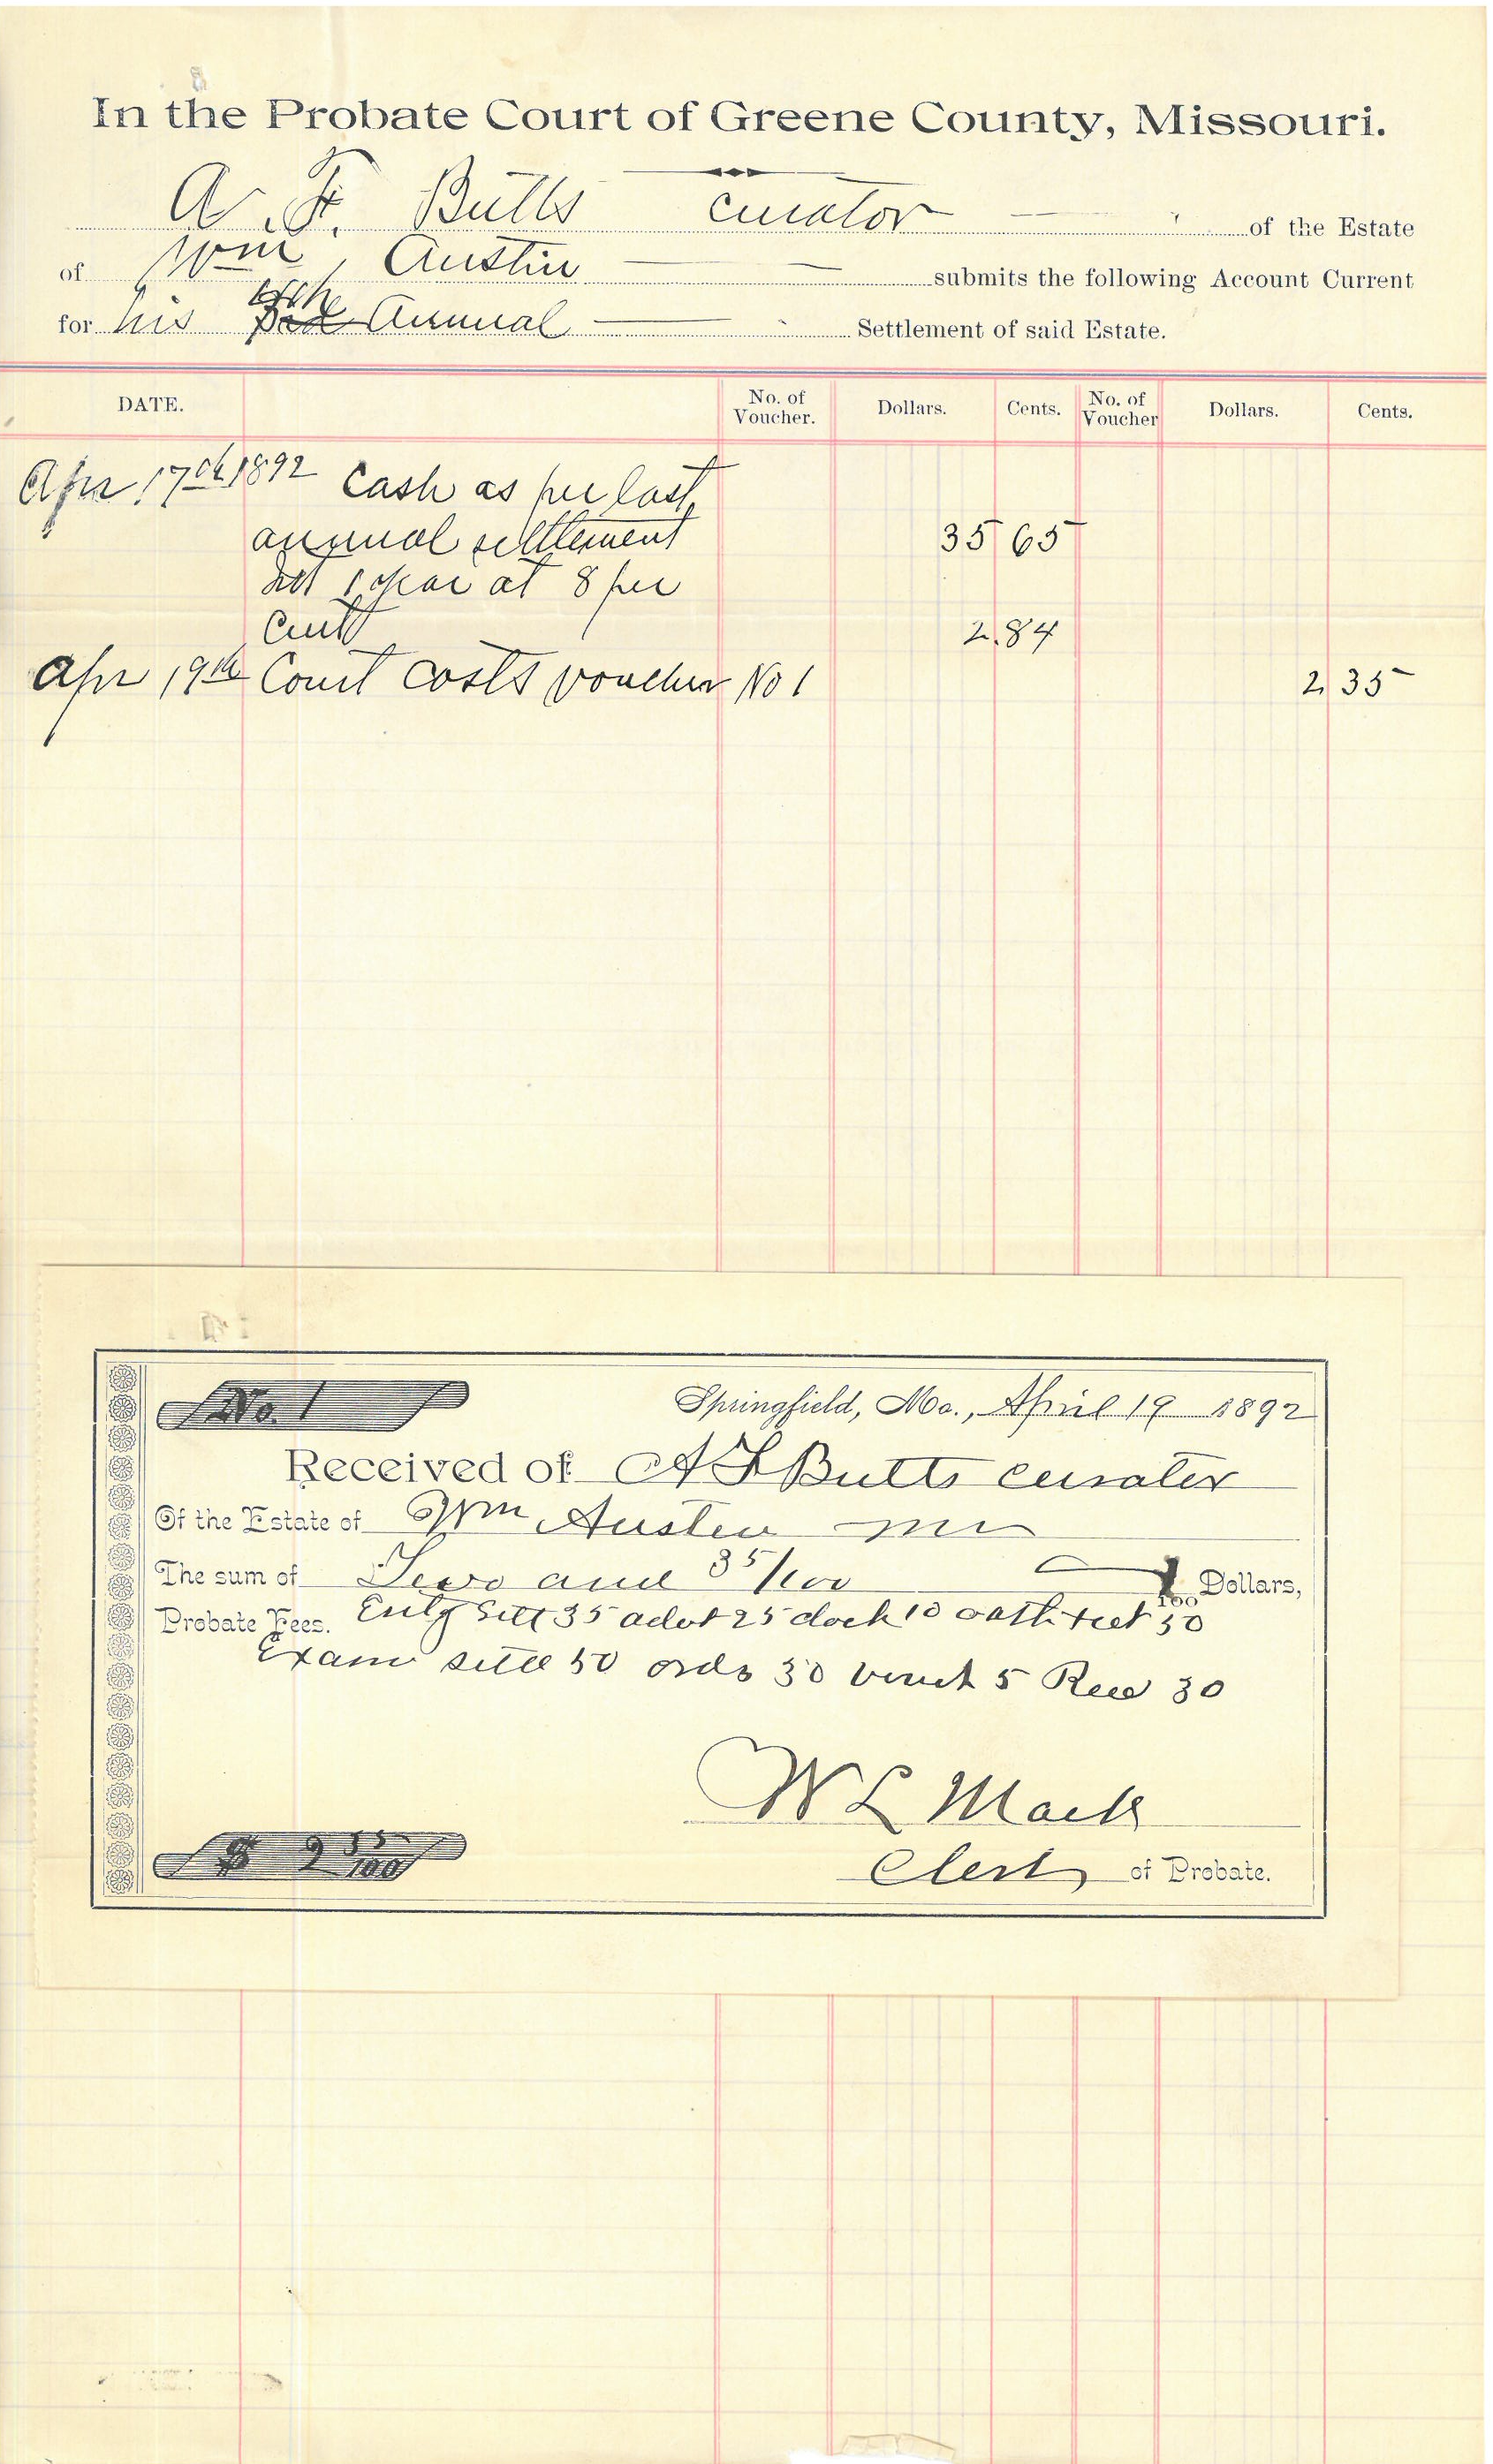 In the Probate Court of Greene County, Missouri.
A. F. Butts curator of the Estate
of Wm, Austin submits the following Account Current
for his Annual Settlement of said Estate.
DATE. No. of Voucher. Dollars. Cents. No. of Voucher Dollars. Cents.
Apr 17th 1892 Cash as per last
annual settlement 35 65
Int 1 year at 8 per
Cent 2.84
Apr 19th Court costs voucher No 1 2 35
No. 1 Springfield, Mo., April 19 1892
Received of A F Butts curator
Of the Estate of Wm Austin
The sum of Two and 35/100 100 Dollars,
Probate Fees. Sett 35 25 dock 10 oath 50
Exam sett 50 ords 30 vouch 5 Rec 30
W L Mack
$ 2 35/100 Clerk of Probate.